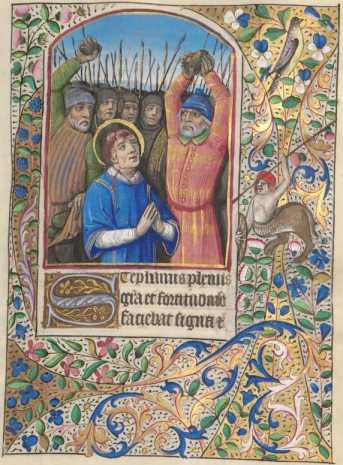 Stephanus plenus
gr̃a et fortitudine
faciebat signa et